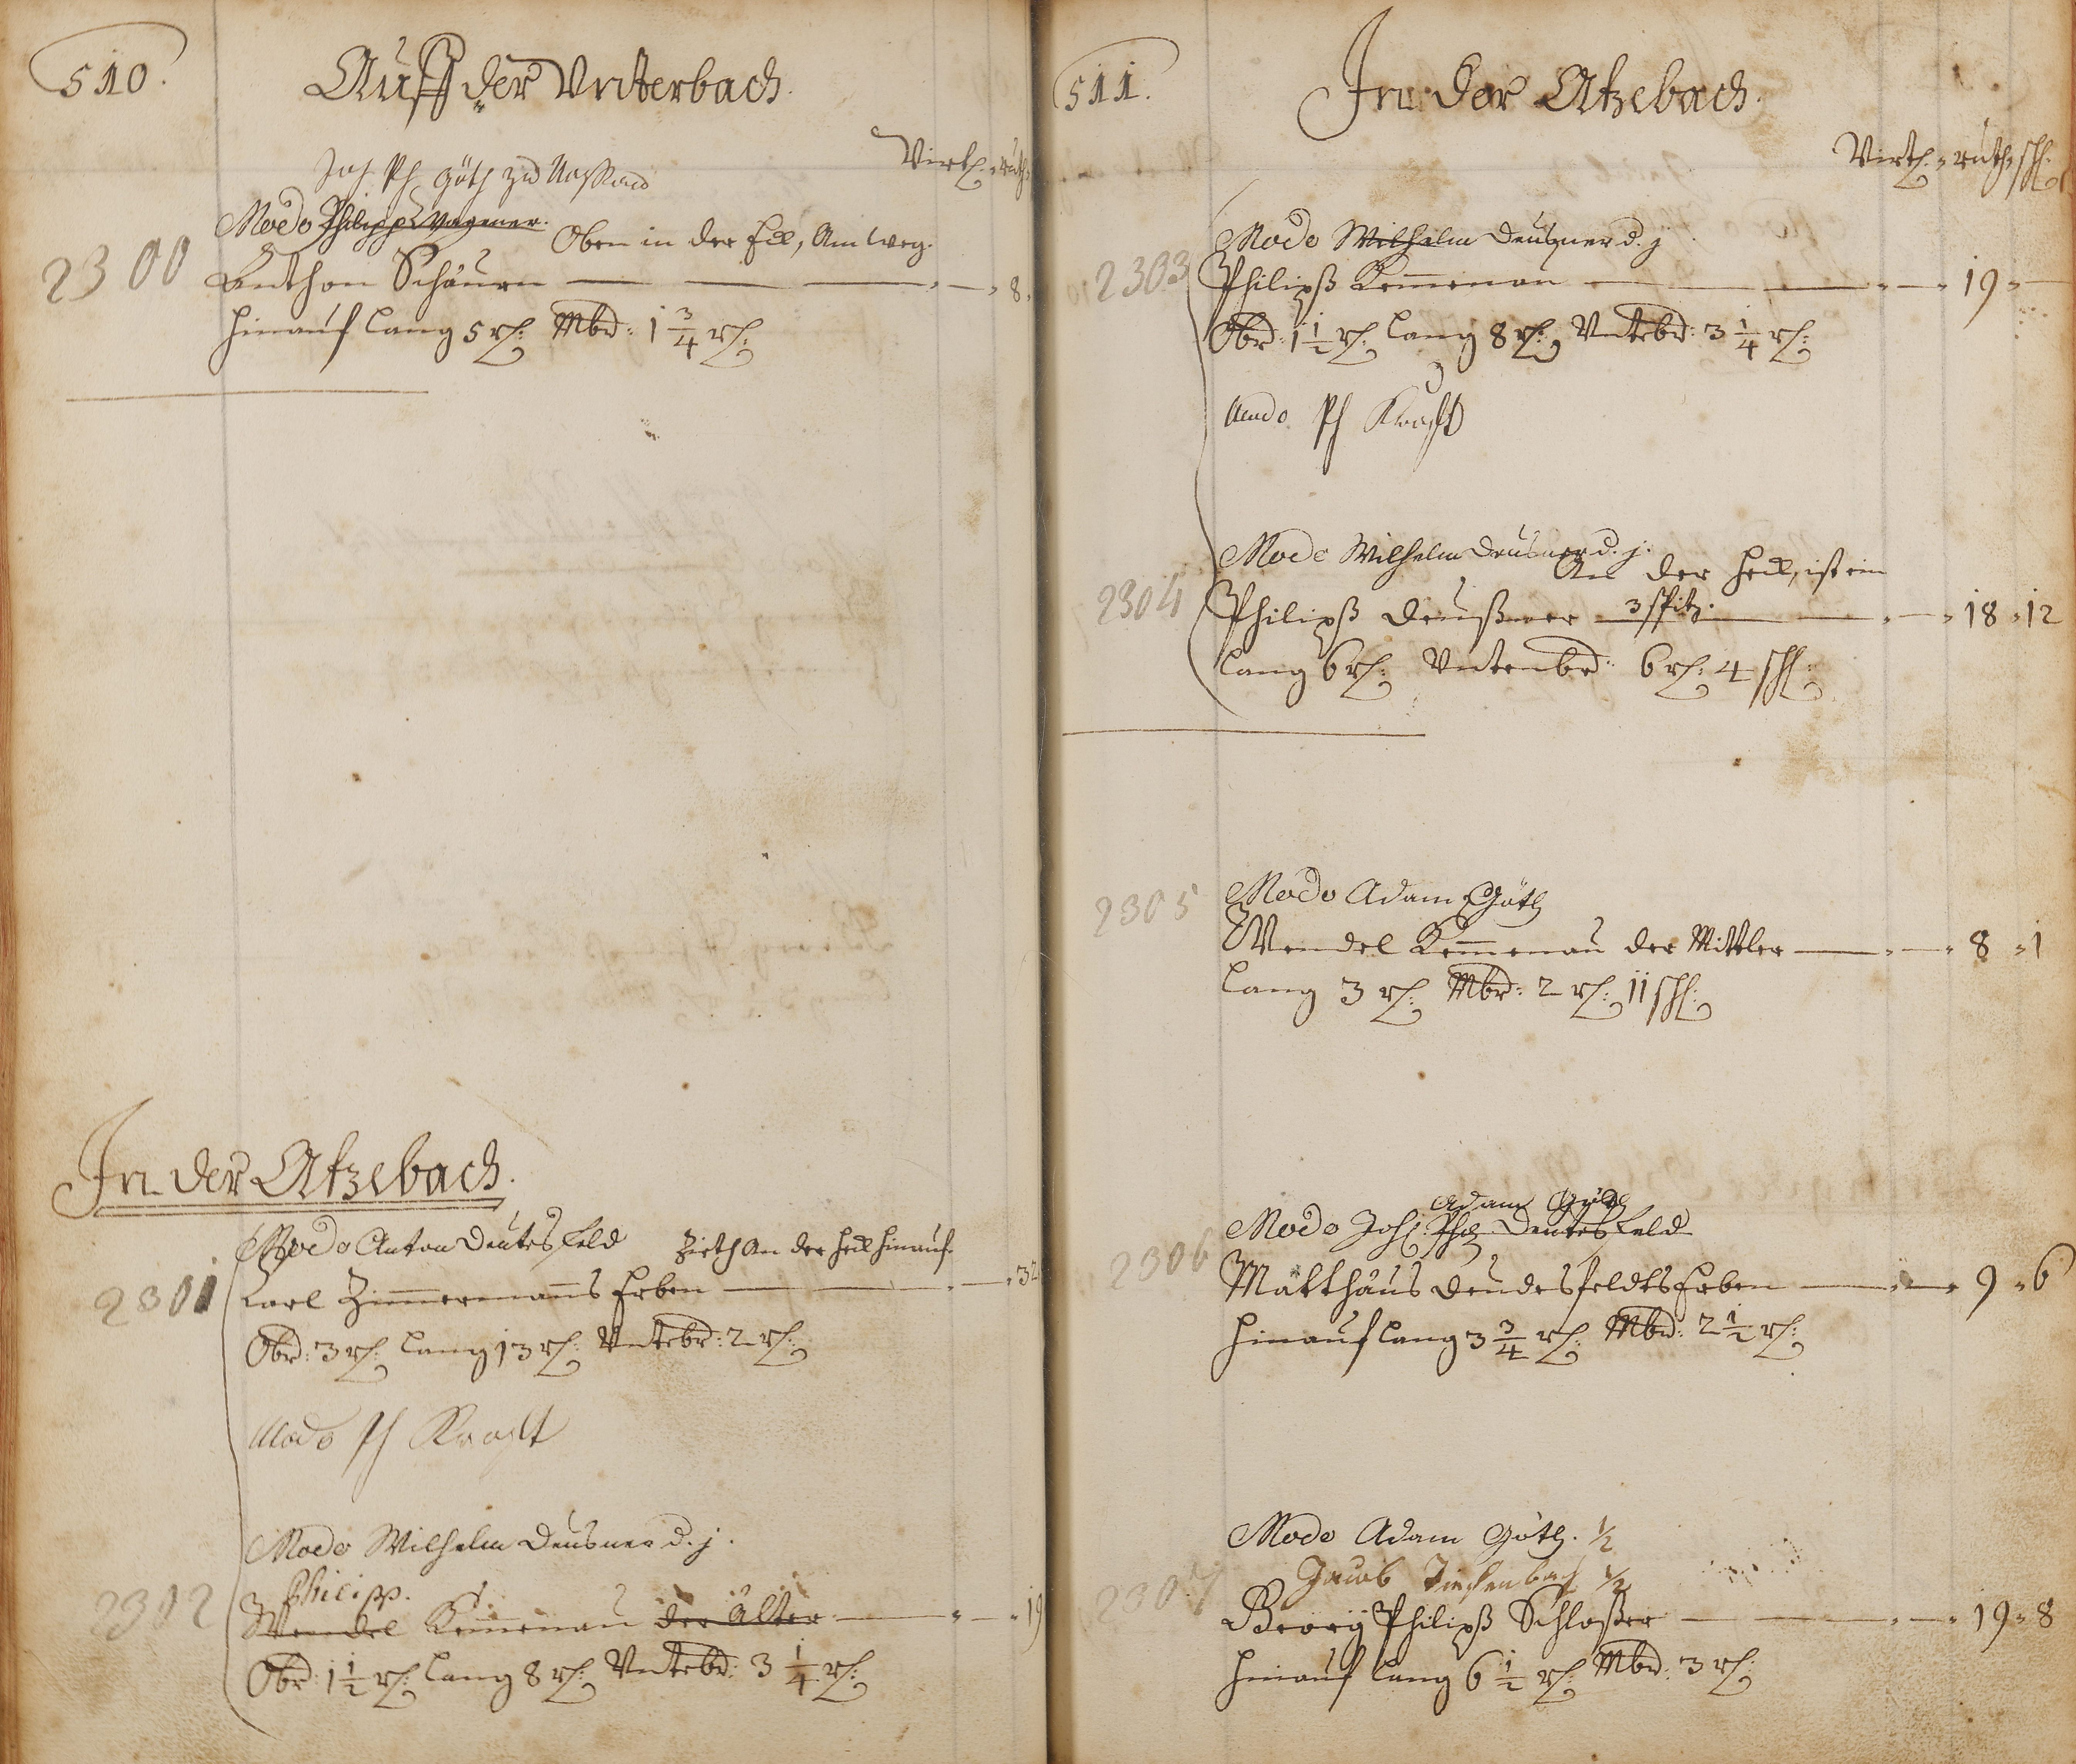 510.
Auff der Unterbach.
Virtl. ruth.
Joh Ph Göth zu Nassau
Modo Philipps Wagener.
Oben in der Hell, Am weg.
2300
Anthon Schäuren — — — 8.
hinauf lang 5 rt: Mbrd: 1 3/4 rt:
In der Atzebach.
Modo Anton Deutesfeld
Zieth An der Hell hinauf.
2301
Carl Zim̅ermans Erben — — 32
Obrd: 3 rt: lang 13 rt: Untebrd: 2 rt:
Modo Ph Krafft
Modo Wilhelm Deusner d. j.
Philipß.
2302
Wendel Kem̅enau der älter — — 19
Obrd: 1 1/2 rt: lang 8 rt: Untebrd: 3 1/4 rt:
511.
In der Atzebach.
Virtl. ruth. sch.
Modo Wilhelm Deusner d. j
2303
Philipß Kem̅enau — — 19 —
Obrd: 1 1/2 rt: lang 8 rt: Untebrd: 3 1/4 rt:
Modo Ph Krafft
Modo Wilhelm Deusner d. j.
An der Hell, ist ein
2304
Philipß Deußner 3 spitz. — — 18 12
lang 6 rt: Untenbrd: 6 rt: 4 sch:
2305
Modo Adam Göth
Wendel Kem̅enau der Mittler — — 8 1
lang 3 rt: Mbrd: 2 rt: 11 sch:
Adam Göth
Modo Joh: Phil Deutesfeld
2306
Matthäus Deudesfeldts Erben — — 9 6
hinauf lang 3 3/4 rt: Mbrd: 2 1/2 rt:
Modo Adam Göth. 1/2
Jacob 1/2
2307
Georg Philipß Schloßer — — 19 8
hinauf lang 6 1/2 rt: Mbrd: 3 rt: